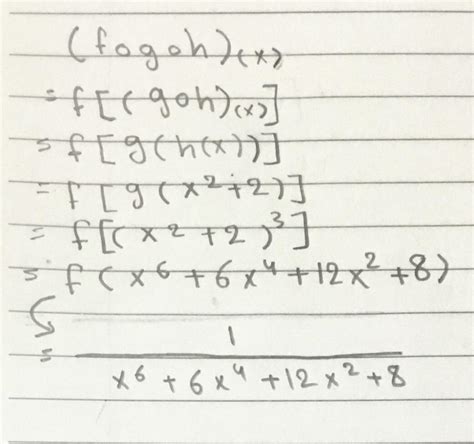 (fogoh)(x)
= f[(goh)(x)]
= f[g(h(x))]
= f[g(x²+2)]
= f[(x²+2)³]
= f(x⁶+6x⁴+12x²+8)
= 1
x⁶+6x⁴+12x²+8